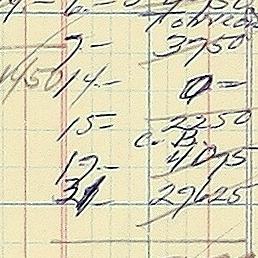 7- 3750
1450 14- 0=
15- 2250
C. B.
17- 4095
31- 29625